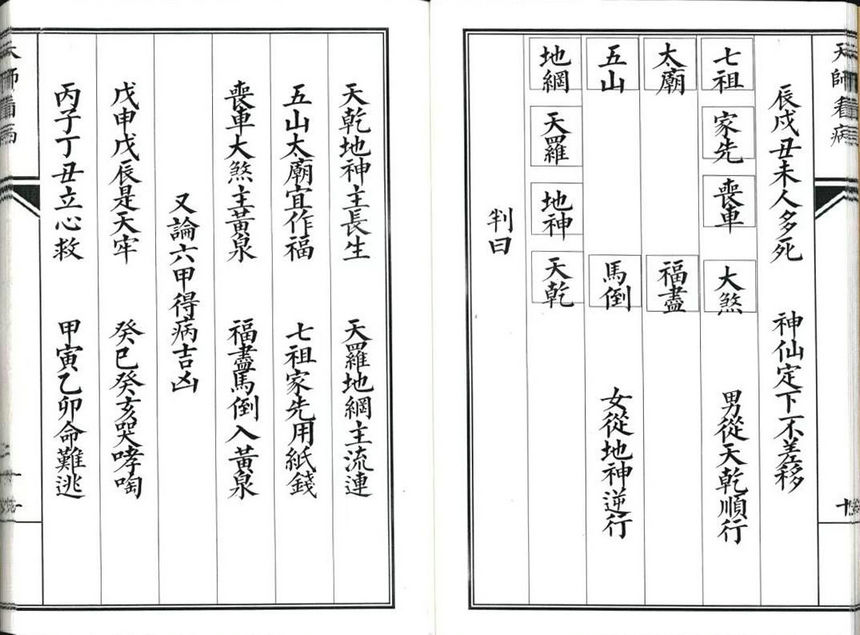 天師看病
辰戌丑未人多死　神仙定下不差移
七祖　家先　喪車　大煞　男從天乾順行
太廟　福盡
五山　馬倒　女從地神逆行
地網　天羅　地神　天乾
判曰
天乾地神主長生　天羅地網主流連
五山太廟宜作福　七祖家先用紙錢
喪車大煞主黃泉　福盡馬倒入黃泉
又論六甲得病吉凶
戊申戊辰是天牢　癸巳癸亥哭哮啕
丙子丁丑立心救　甲寅乙卯命難逃
天師看病